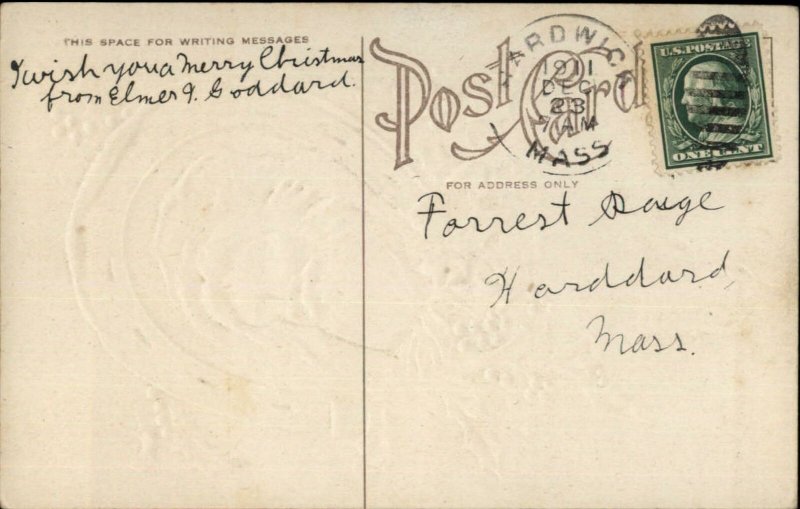 THIS SPACE FOR WRITING MESSAGES
I wish you a Merry Christmas
from Elmer I. Goddard.
Post Card
HARDWICK
1911
DEC
23
7 AM
MASS
U.S. POSTAGE
ONE CENT
FOR ADDRESS ONLY
Forrest Paige
Harddard,
Mass.